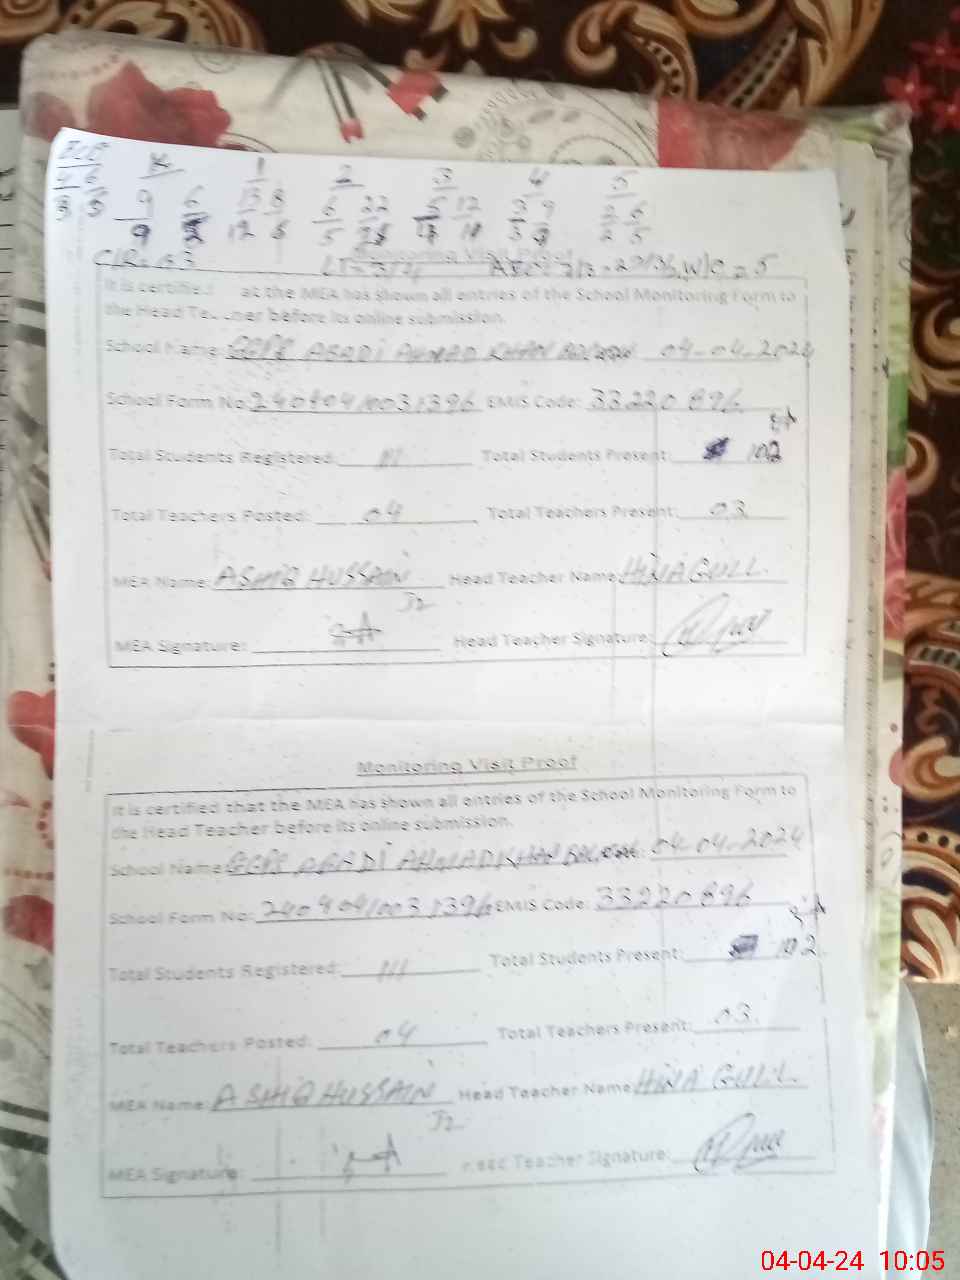 ECE K 1 2 3 4 5
4 6 9 6 13 8 6 22 5 12 3 9 2 6
3 5 9 12 6 5 4 10 3 9 2 5
Monitoring Visit Proof
It is certified at the MEA has shown all entries of the School Monitoring Form to
the Head Teacher before its online submission.
School Name: GGPS ABADI AHMAD KHAN 04-04-2024
School Form No: 24040410031396 EMIS Code: 33220896
Total Students Registered: 111 Total Students Present: 102
Total Teachers Posted: 04 Total Teachers Present: 03
MEA Name: ASHIQ HUSSAIN Head Teacher Name HINA GULL
MEA Signature: Head Teacher Signature:
Monitoring Visit Proof
It is certified that the MEA has shown all entries of the School Monitoring Form to
the Head Teacher before its online submission.
School Name: GGPS ABADI AHMAD KHAN 04-04-2024
School Form No: 24040410031396 EMIS Code: 33220896
Total Students Registered: 111 Total Students Present: 102
Total Teachers Posted: 04 Total Teachers Present: 03
MEA Name: ASHIQ HUSSAIN Head Teacher Name HINA GULL
MEA Signature: Head Teacher Signature:
04-04-24 10:05